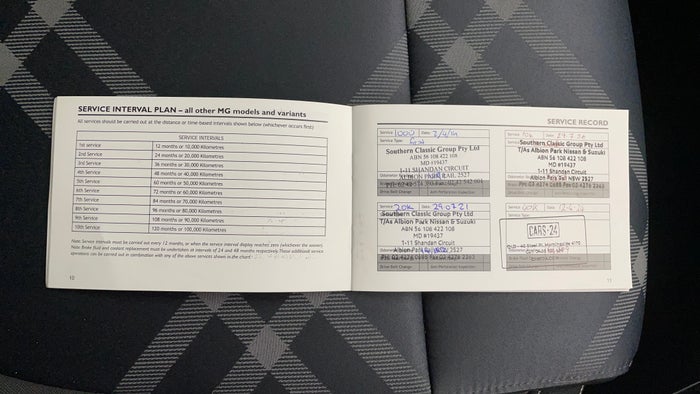 SERVICE INTERVAL PLAN – all other MG models and variants
All services should be carried out at the distance or time-based intervals shown below (whichever occurs first)
SERVICE INTERVALS
1st service 12 months or 10,000 Kilometres
2nd Service 24 months or 20,000 Kilometres
3rd Service 36 months or 30,000 Kilometres
4th Service 48 months or 40,000 Kilometres
5th Service 60 months or 50,000 Kilometres
6th Service 72 months or 60,000 Kilometres
7th Service 84 months or 70,000 Kilometres
8th Service 96 months or 80,000 Kilometres
9th Service 108 months or 90,000 Kilometres
10th Service 120 months or 100,000 Kilometres
Note: Service intervals must be carried out every 12 months, or when the service interval display reaches zero (whichever the sooner).
Note: Brake fluid and coolant replacement must be undertaken at intervals of 24 and 48 months respectively. These additional service
operations can be carried out in combination with any of the above services shown in the chart
10
SERVICE RECORD
Service 1000 Date
Service Type:
Southern Classic Group Pty Ltd
ABN 56 108 422 108
MD #19437
1-11 SHANDAN CIRCUIT
ALBION PARK RAIL, 2527
Drive Belt Change Anti-Perforation Inspection
Service 10K Date
Southern Classic Group Pty Ltd
T/As Albion Park Nissan & Suzuki
ABN 56 108 422 108
MD #19437
1-11 Shandan Circuit
Albion Park Rail NSW 2527
PH 02 4274 0695 Fax 02 4276 2263
Service 20K Date 29.07.21
Southern Classic Group Pty Ltd
T/As Albion Park Nissan & Suzuki
ABN 56 108 422 108
MD #19437
1-11 Shandan Circuit
Albion Park 2527
PH 02 4274 0695 Fax 02 4276 2263
Drive Belt Change Anti-Perforation Inspection
Service Date
Service Type:
CARS·24
11